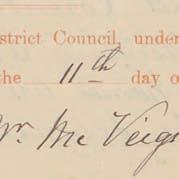 strict Council, under
the 11th day o
Mc Veig